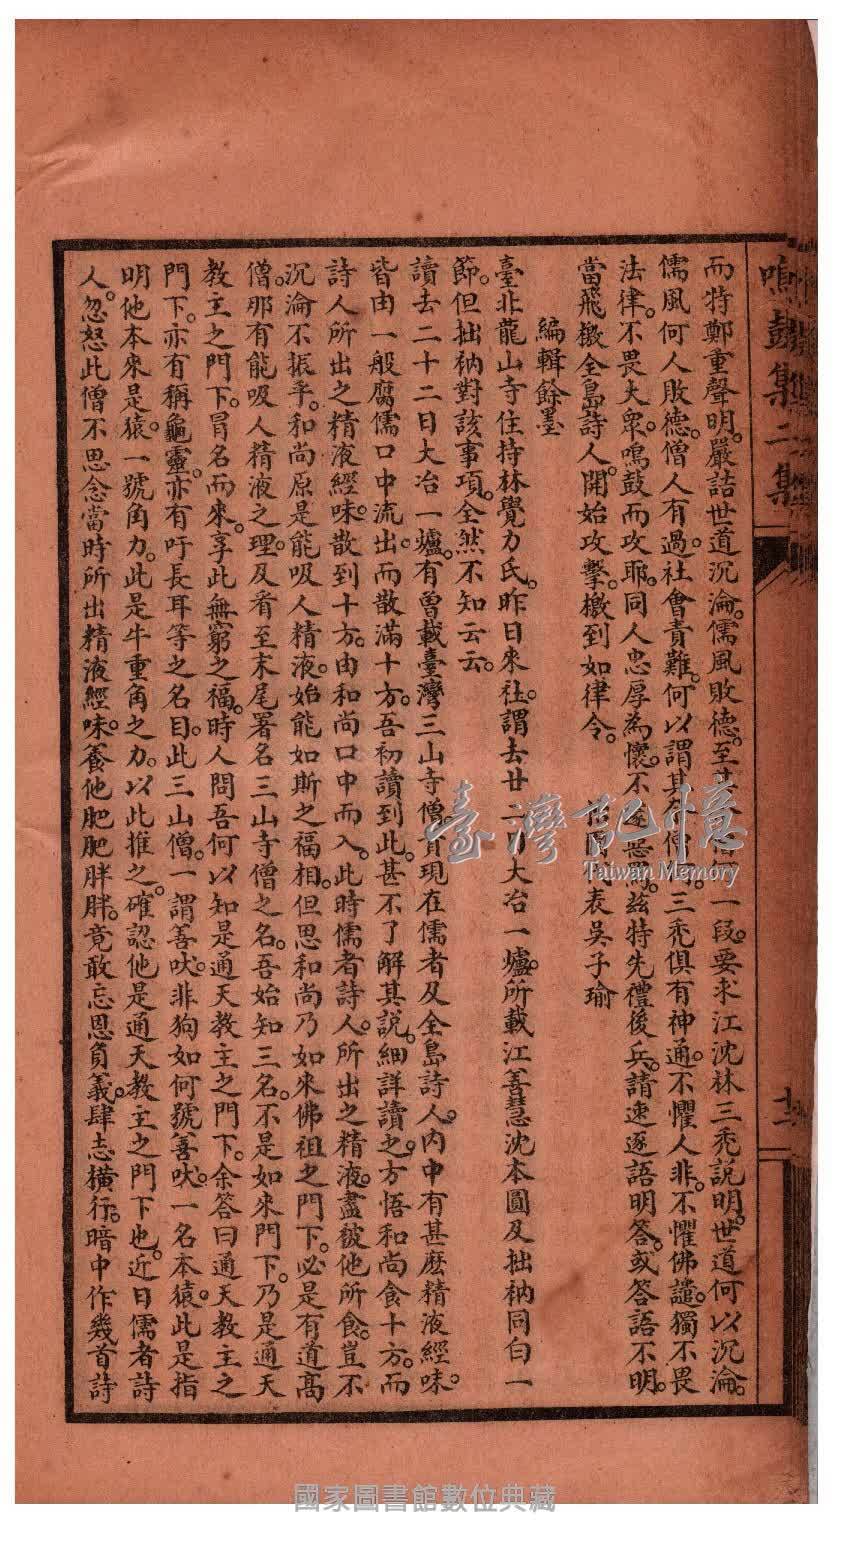 鳴鼓集二集
而特鄭重聲明。嚴詰世道沉淪。儒風敗德。至其 一段。要求江沈林三禿說明。世道何以沉淪。
儒風何人敗德。僧人有過。社會責難。何以謂其 三禿俱有神通。不懼人非。不懼佛譴。獨不畏
法律。不畏大眾。鳴鼓而攻耶。同人忠厚為懷。不 茲特先禮後兵。請速逐語明答。或答語不明。
當飛檄全島詩人。開始攻擊。檄到如律令。 代表吳子瑜
編輯餘墨
臺北龍山寺住持林覺力氏。昨日來社。謂去廿二日大冶一爐。所載江善慧沈本圓及拙衲同白一
節。但拙衲對該事項。全然不知云云。
讀去二十二日大冶一爐。有曾載臺灣三山寺僧責現在儒者及全島詩人。內中有甚麼精液經味。
皆由一般腐儒口中流出而散滿十方。吾初讀到此。甚不了解其說。細詳讀之。方悟和尚食十方。而
詩人所出之精液經味。散到十方。由和尚口中而入。此時儒者詩人。所出之精液。盡被他所食。豈不
沉淪不振乎。和尚原是能吸人精液。始能如斯之福相。但思和尚乃如來佛祖之門下。必是有道高
僧。那有能吸人精液之理。及看至末尾署名三山寺僧之名。吾始知三名。不是如來門下。乃是通天
教主之門下。冒名而來。享此無窮之福。時人問吾何以知是通天教主之門下。余答曰通天教主之
門下。亦有稱龜靈。亦有吁長耳等之名目。此三山僧。一謂善吠。非狗如何號善吠。一名本猿。此是指
明他本來是猿。一號角力。此是牛重角之力。以此推之。確認他是通天教主之門下也。近日儒者詩
人。忽怒此僧不思念當時所出精液經味。養他肥肥胖胖。竟敢忘恩負義。肆志橫行。暗中作幾首詩
臺灣記憶
Taiwan Memory
國家圖書館數位典藏